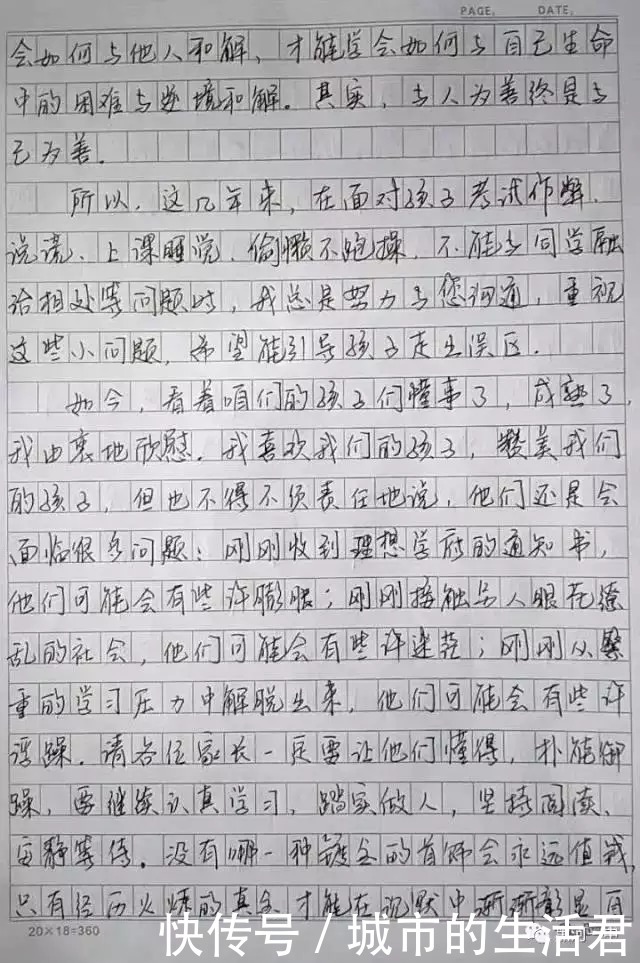 PAGE. DATE.
会如何与他人和解,才能学会如何与自己生命
中的困难与逆境和解。其实,与人为善终是与
己为善。
所以,这几年来,在面对孩子考试作弊、
说谎、上课睡觉、偷懒不跑操、不能与同学融
洽相处等问题时,我总是努力与您沟通,重视
这些小问题,希望能引导孩子走出误区。
如今,看着咱们的孩子们懂事了,成熟了,
我由衷地欣慰。我喜欢我们的孩子,赞美我们
的孩子,但也不得不负责任地说,他们还是会
面临很多问题:刚刚收到理想学府的通知书,
他们可能会有些许膨胀;刚刚接触另人眼花缭
乱的社会,他们可能会有些许迷茫;刚刚从繁
重的学习压力中解脱出来,他们可能会有些许
浮躁。请各位家长一定要让他们懂得,朴能御
躁,要继续认真学习,踏实做人,坚持阅读,
安静等待。没有哪一种镀金的首饰会永远值钱,
只有经历火烤的真金才能在沉默中渐渐彰显自
20×18=360
快传号/城市的生活君